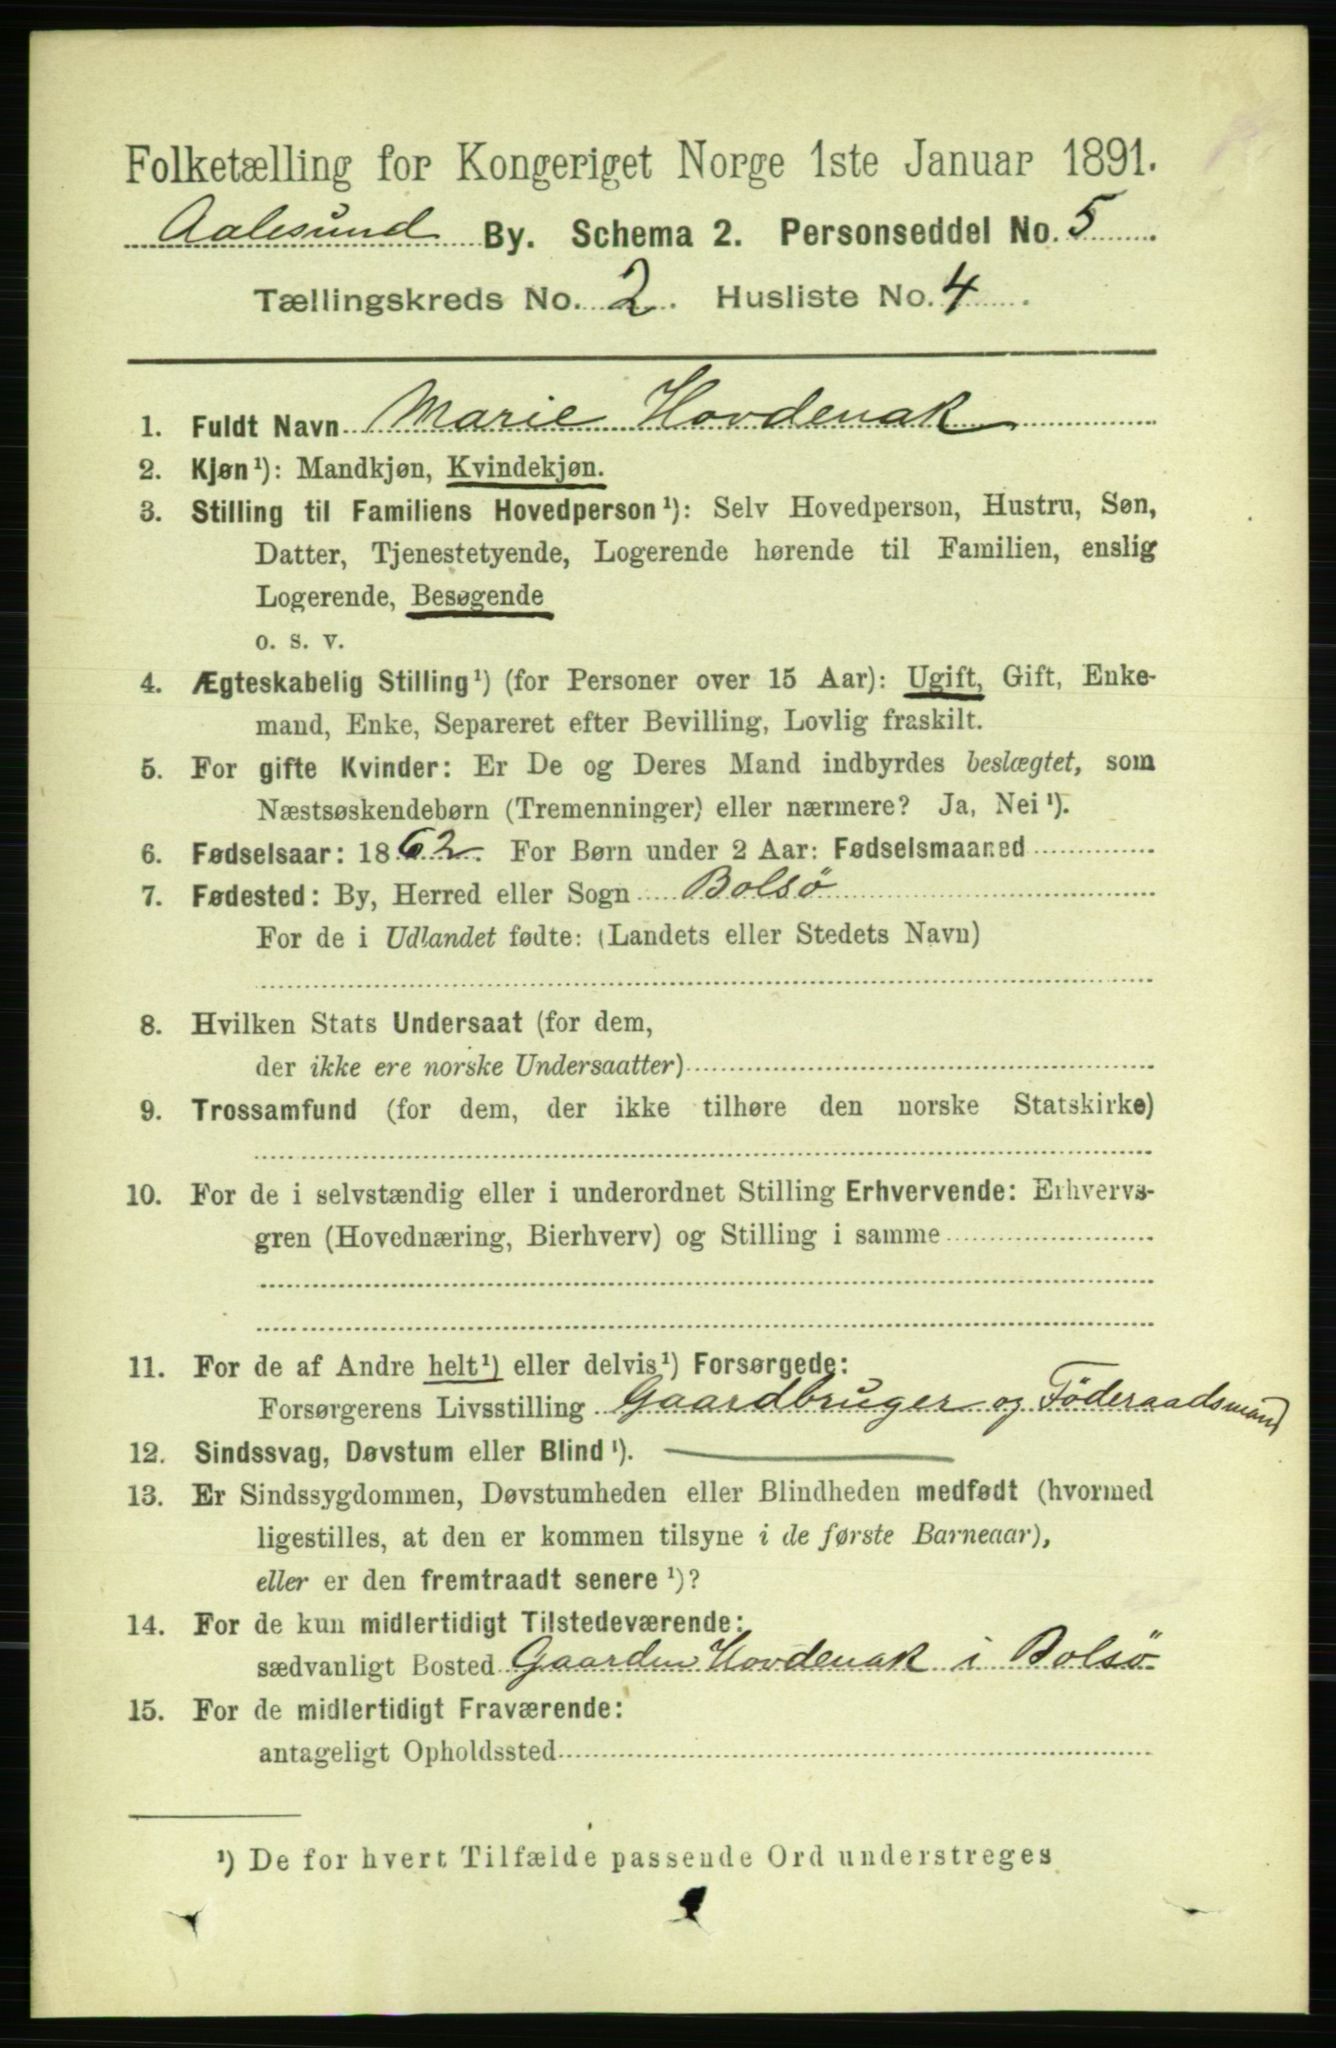 Folketælling for Kongeriget Norge 1ste Januar 1891.
Aalesund By. Schema 2. Personseddel No. 5
Tællingskreds No. 2. Husliste No. 4.
1. Fuldt Navn Marie Hovdenak
2. Kjøn¹): Mandkjøn, Kvindekjøn.
3. Stilling til Familiens Hovedperson¹): Selv Hovedperson, Hustru, Søn,
Datter, Tjenestetyende, Logerende hørende til Familien, enslig
Logerende, Besøgende
o. s. v.
4. Ægteskabelig Stilling¹) (for Personer over 15 Aar): Ugift, Gift, Enke-
mand, Enke, Separeret efter Bevilling, Lovlig fraskilt.
5. For gifte Kvinder: Er De og Deres Mand indbyrdes beslægtet, som
Næstsøskendebørn (Tremenninger) eller nærmere? Ja, Nei¹).
6. Fødselsaar: 1862. For Børn under 2 Aar: Fødselsmaaned
7. Fødested: By, Herred eller Sogn Bolsö
For de i Udlandet fødte: (Landets eller Stedets Navn)
8. Hvilken Stats Undersaat (for dem,
der ikke ere norske Undersaatter)
9. Trossamfund (for dem, der ikke tilhøre den norske Statskirke)
10. For de i selvstændig eller i underordnet Stilling Erhvervende: Erhvervs-
gren (Hovednæring, Bierhverv) og Stilling i samme
11. For de af Andre helt¹) eller delvis¹) Forsørgede:
Forsørgerens Livsstilling Gaardbruger og Föderaadsmand
12. Sindssvag, Døvstum eller Blind¹).
13. Er Sindssygdommen, Døvstumheden eller Blindheden medfødt (hvormed
ligestilles, at den er kommen tilsyne i de første Barneaar),
eller er den fremtraadt senere¹)?
14. For de kun midlertidigt Tilstedeværende:
sædvanligt Bosted Gaarden Hovdenak i Bolsö
15. For de midlertidigt Fraværende:
antageligt Opholdssted
¹) De for hvert Tilfælde passende Ord understreges